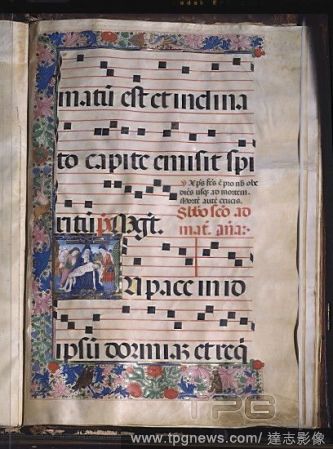 matū est et inclina
to capite emisit spi
ritū ps Mgr̄.
xp̄s fcs ē pro nb obe
diēs usq; ad mortem.
Morte aute crucis.
Sb̄bo sc̄o ad
mat. anā:
N pace in id
ipsū dormiaz et req
TPG
www.tpgnews.com/達志影像